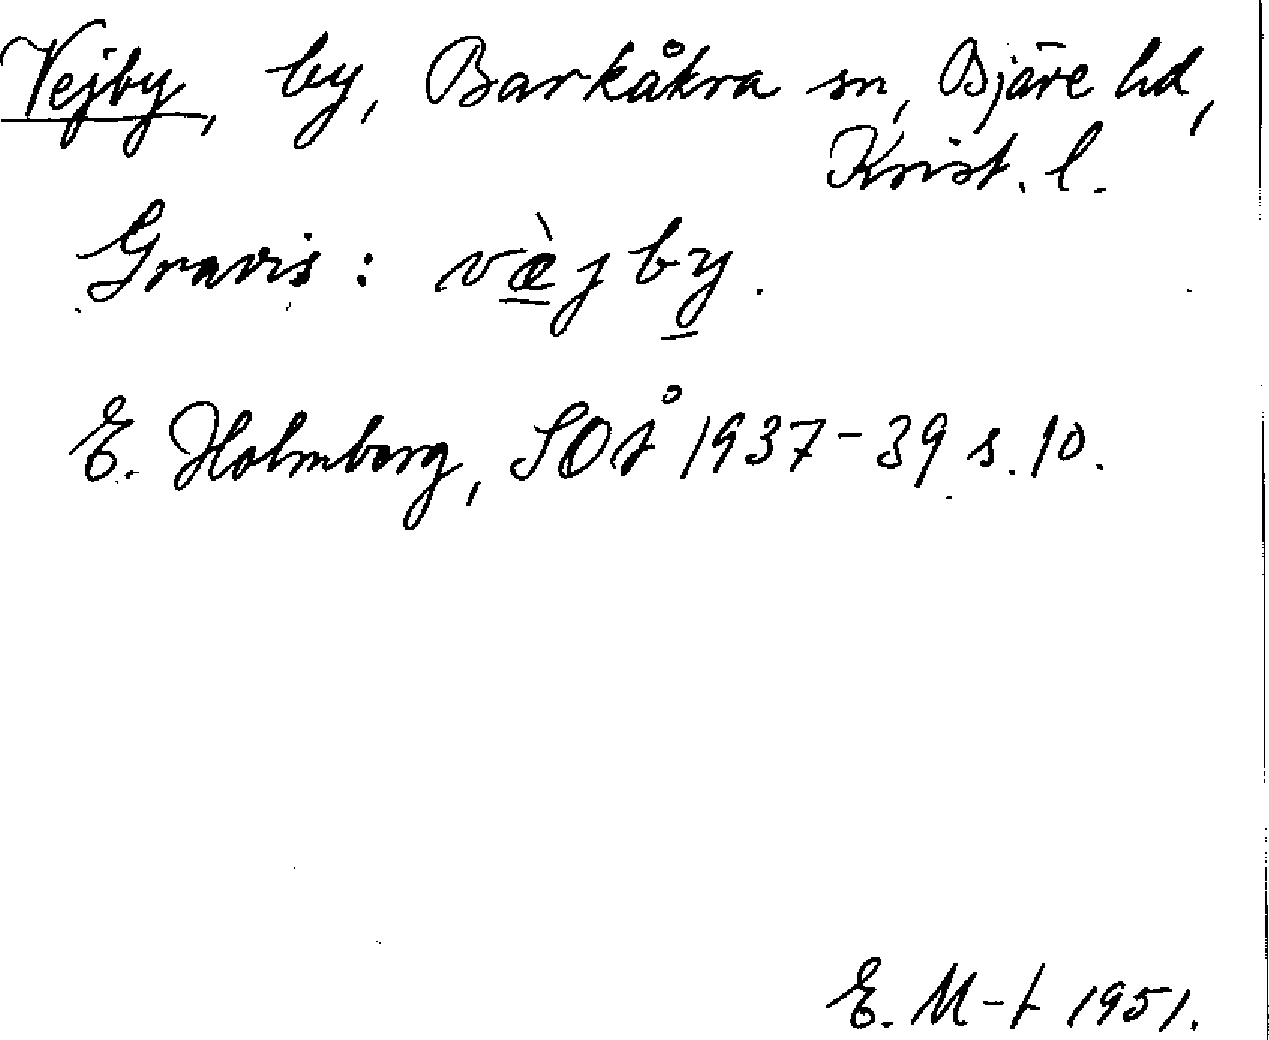 Vejby, by, Barkåkra sn, Bjäre hd,
Krist. l.
Gravis: væ̀jby.
E. Holmberg, SOÅ 1937-39 s. 10.
E. M-t 1951.